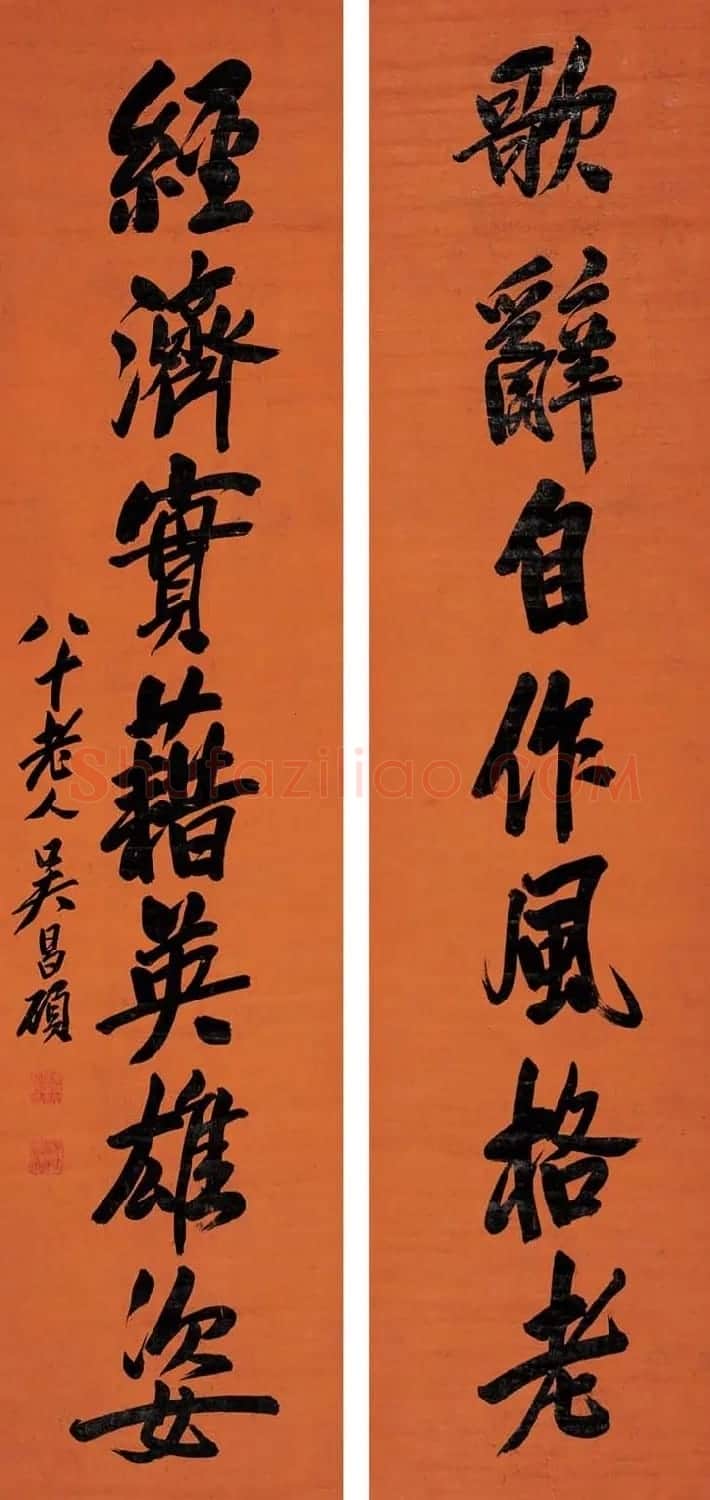 歌辭自作風格老
經濟實藉英雄姿
八十老人吳昌碩
Shufaziliao.COM